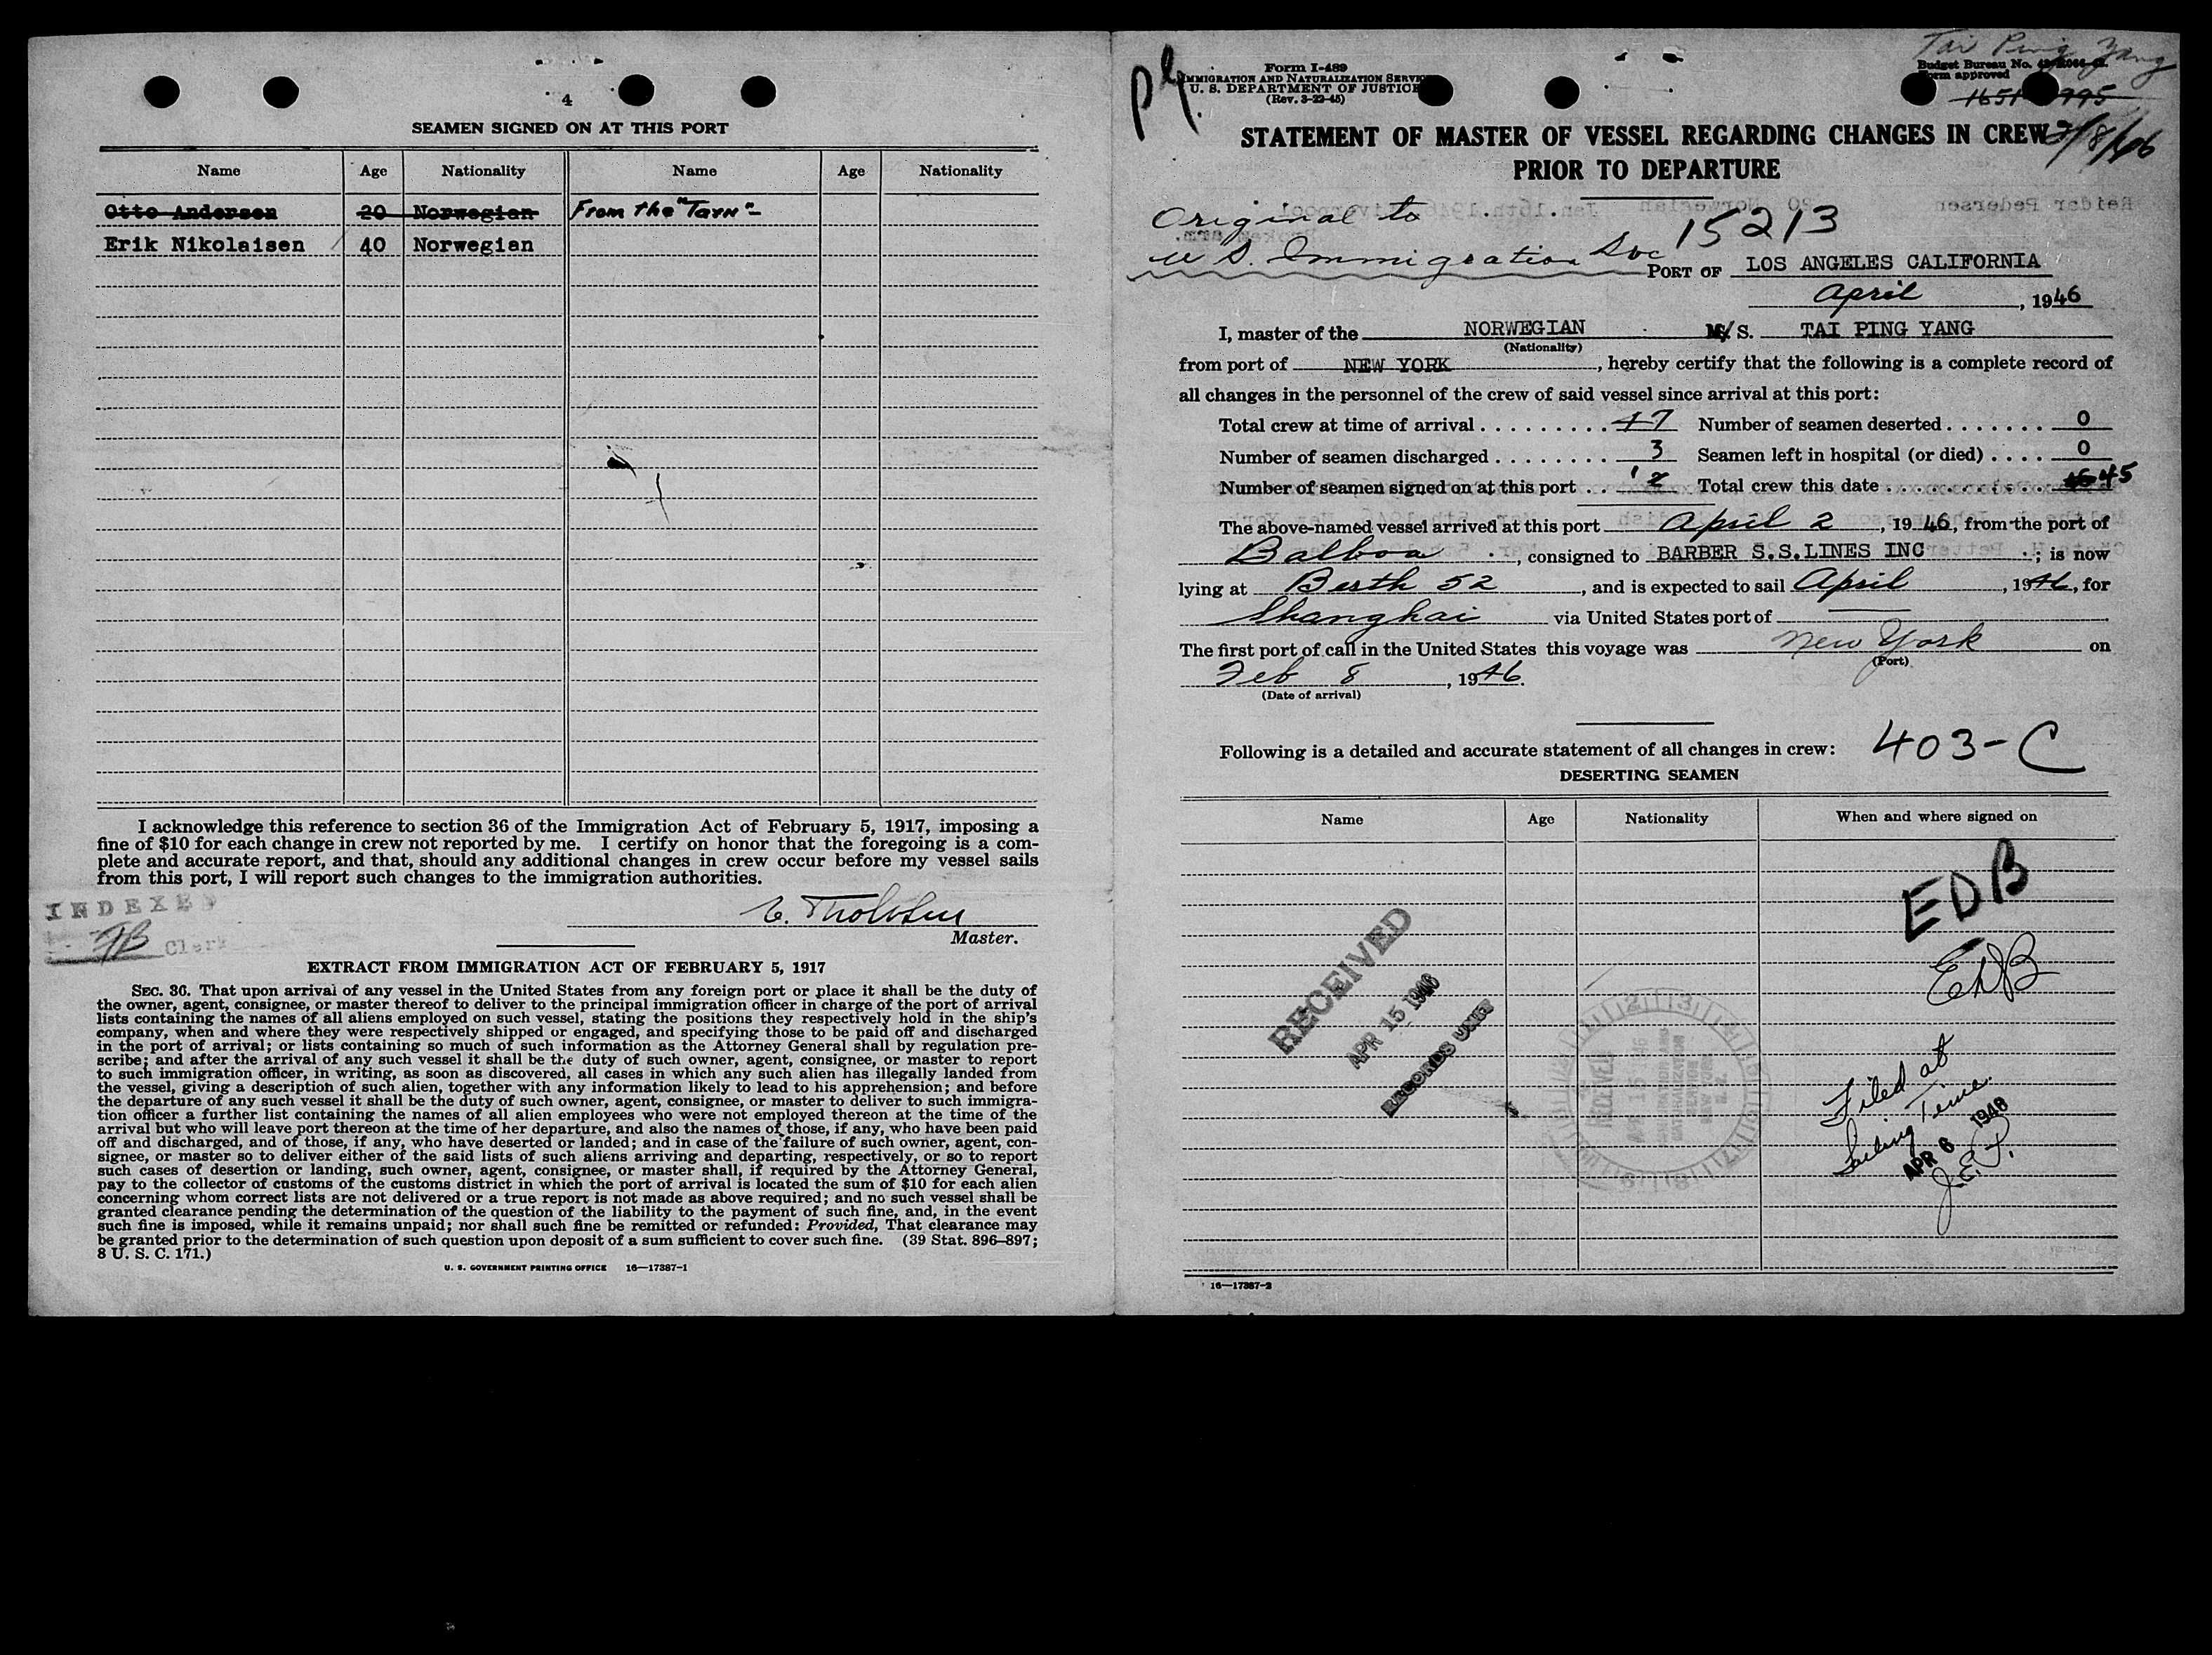 4
SEAMEN SIGNED ON AT THIS PORT
Name Age Nationality Name Age Nationality
Otto Andersen 20 Norwegian From the "Tarn"-
Erik Nikolaisen 40 Norwegian
I acknowledge this reference to section 36 of the Immigration Act of February 5, 1917, imposing a
fine of $10 for each change in crew not reported by me. I certify on honor that the foregoing is a com-
plete and accurate report, and that, should any additional changes in crew occur before my vessel sails
from this port, I will report such changes to the immigration authorities.
INDEXED
Clerk
Master.
EXTRACT FROM IMMIGRATION ACT OF FEBRUARY 5, 1917
SEC. 36. That upon arrival of any vessel in the United States from any foreign port or place it shall be the duty of
the owner, agent, consignee, or master thereof to deliver to the principal immigration officer in charge of the port of arrival
lists containing the names of all aliens employed on such vessel, stating the positions they respectively hold in the ship's
company, when and where they were respectively shipped or engaged, and specifying those to be paid off and discharged
in the port of arrival; or lists containing so much of such information as the Attorney General shall by regulation pre-
scribe; and after the arrival of any such vessel it shall be the duty of such owner, agent, consignee, or master to report
to such immigration officer, in writing, as soon as discovered, all cases in which any such alien has illegally landed from
the vessel, giving a description of such alien, together with any information likely to lead to his apprehension; and before
the departure of any such vessel it shall be the duty of such owner, agent, consignee, or master to deliver to such immigra-
tion officer a further list containing the names of all alien employees who were not employed thereon at the time of the
arrival but who will leave port thereon at the time of her departure, and also the names of those, if any, who have been paid
off and discharged, and of those, if any, who have deserted or landed; and in case of the failure of such owner, agent, con-
signee, or master so to deliver either of the said lists of such aliens arriving and departing, respectively, or so to report
such cases of desertion or landing, such owner, agent, consignee, or master shall, if required by the Attorney General,
pay to the collector of customs of the customs district in which the port of arrival is located the sum of $10 for each alien
concerning whom correct lists are not delivered or a true report is not made as above required; and no such vessel shall be
granted clearance pending the determination of the question of the liability to the payment of such fine, and, in the event
such fine is imposed, while it remains unpaid; nor shall such fine be remitted or refunded: Provided, That clearance may
be granted prior to the determination of such question upon deposit of a sum sufficient to cover such fine. (39 Stat. 896–897;
8 U. S. C. 171.)
U. S. GOVERNMENT PRINTING OFFICE 16—17387-1
Tai Ping Yang
Form I-489
IMMIGRATION AND NATURALIZATION SERVICE
U. S. DEPARTMENT OF JUSTICE
(Rev. 3-22-45)
Budget Bureau No.
Form approved
STATEMENT OF MASTER OF VESSEL REGARDING CHANGES IN CREW
PRIOR TO DEPARTURE
2/8/46
Original to
U S. Immigration Svc
15213
PORT OF LOS ANGELES CALIFORNIA
April, 1946
I, master of the NORWEGIAN M/S. TAI PING YANG
(Nationality)
from port of NEW YORK, hereby certify that the following is a complete record of
all changes in the personnel of the crew of said vessel since arrival at this port:
Total crew at time of arrival . . . . . . . . . 47 Number of seamen deserted . . . . . . . 0
Number of seamen discharged . . . . . . . . 3 Seamen left in hospital (or died) . . . . 0
Number of seamen signed on at this port . . 1 2 Total crew this date . . . . . . . . . . . . 46 45
The above-named vessel arrived at this port April 2, 1946, from the port of
Balboa, consigned to BARBER S.S.LINES INC; is now
lying at Berth 52, and is expected to sail April, 1946, for
Shanghai via United States port of
The first port of call in the United States this voyage was New York on
(Port)
Feb 8, 1946.
(Date of arrival)
Following is a detailed and accurate statement of all changes in crew:
403-C
DESERTING SEAMEN
Name Age Nationality When and where signed on
EDB
EDB
RECEIVED
APR 15 1946
RECORDS UNIT
RECEIVED
APR 15 1946
Filed at
Sailing Time
APR 6 1946
J.E.T.
16—17387-2